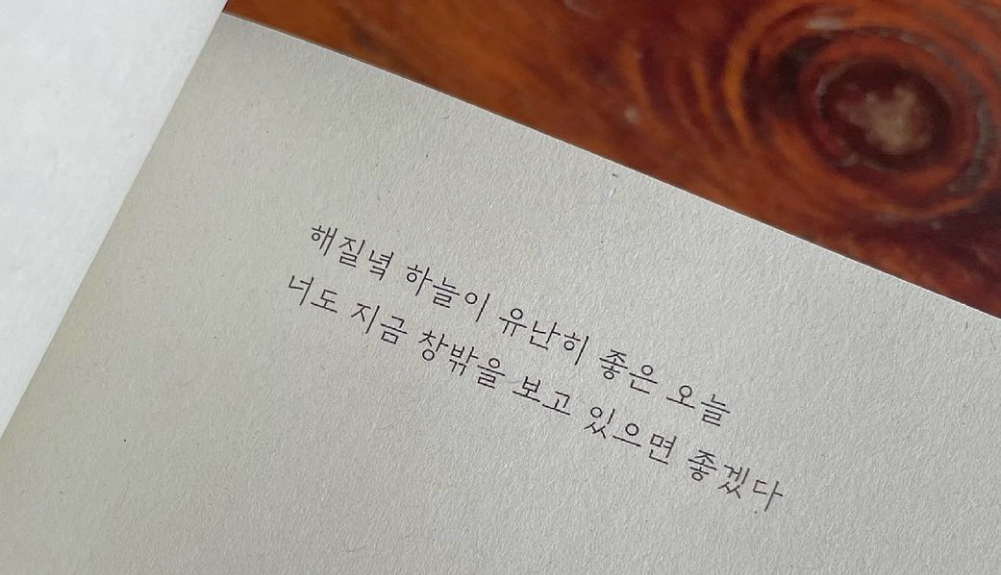 해질녘 하늘이 유난히 좋은 오늘
너도 지금 창밖을 보고 있으면 좋겠다